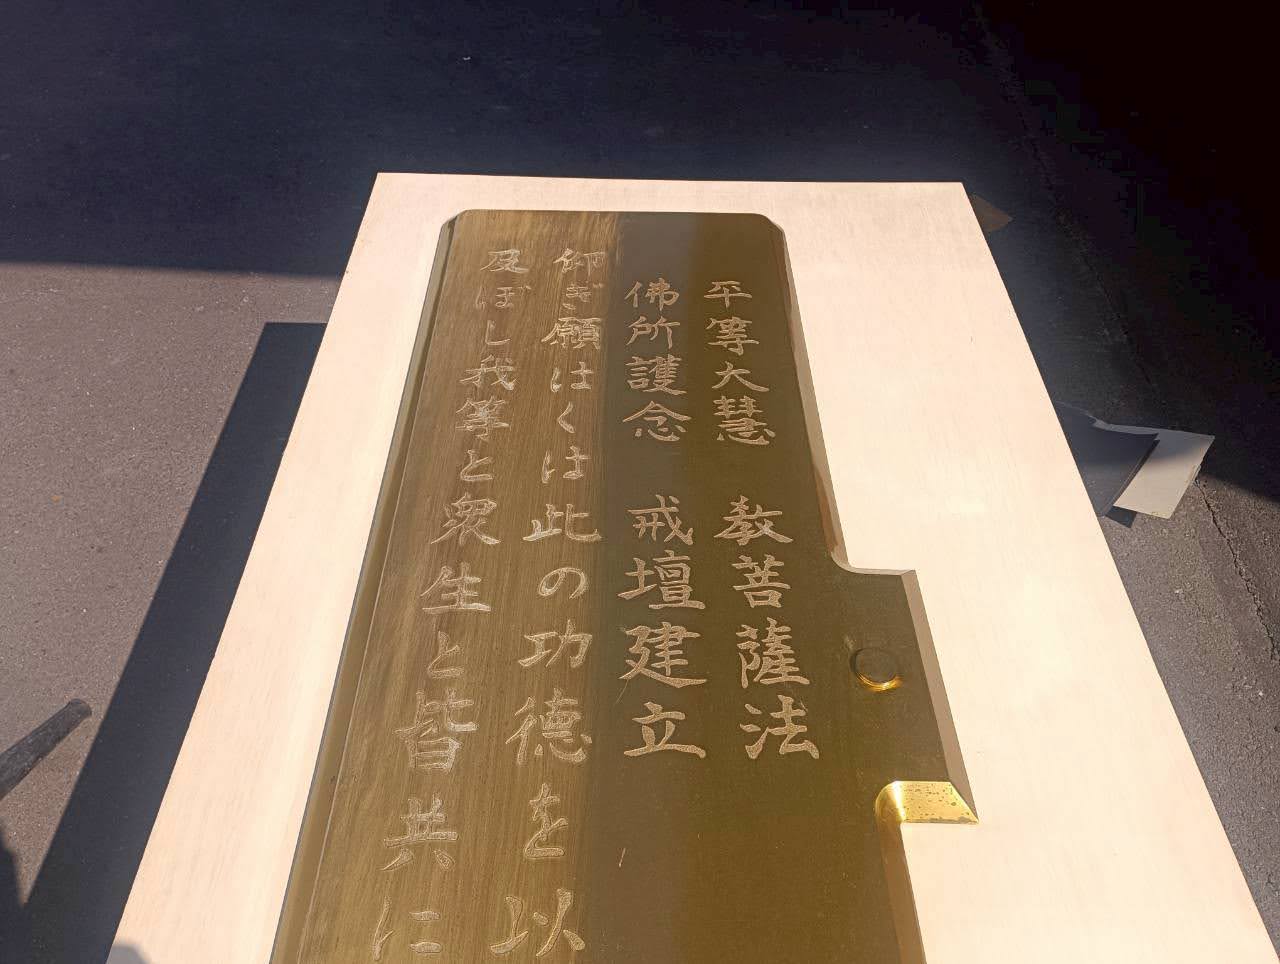 平等大慧 教菩薩法
佛所護念 戒壇建立
仰ぎ願はくは此の功徳を以
及ぼし我等と衆生と皆共に